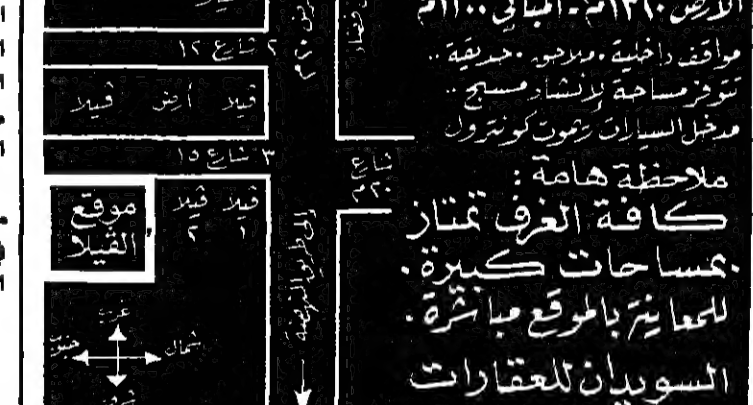 الأرض ١٣٢٠م - المباني ١١٠٠م
مواقف داخلية . ملاحق . حديقة ..
تتوفر مساحة لإنشاء مسبح ..
مدخل السيارات ريموت كونترول
ملاحظة هامة :
كافة الغرف تمتاز
بمساحات كبيرة .
للمعاينة بالموقع مباشرة .
السويدان للعقارات
شارع ١٢ م
فيلا أرض فيلا
شارع ١٥ م
شارع ٢٠م
موقع الفيلا
فيلا ٢
فيلا ١
إلى طريق النهضة
غرب
شمال
جنوب